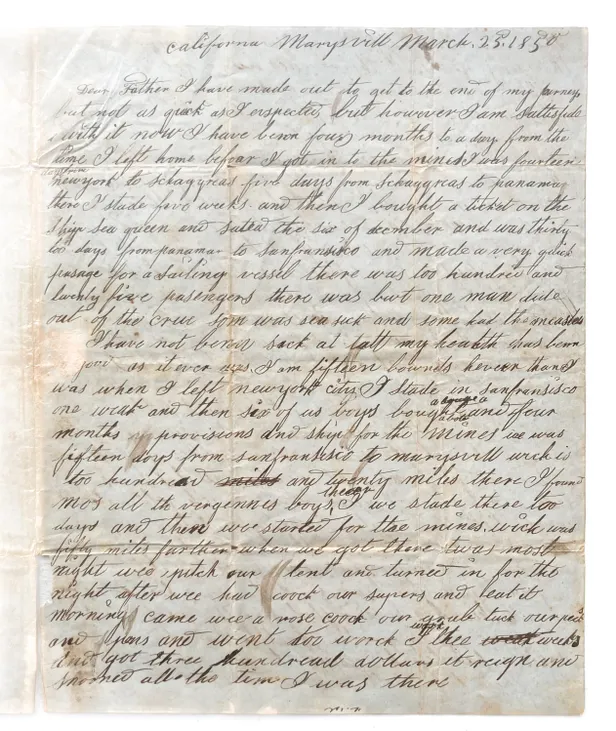 California Marysvill March. 25. 1850
Dear Father I have made out to get to the end of my jurney
but not as quick as I expected, but however I am sattisfide
with it now I have benn four months to a day from the
time I left home befoar I got in to the mines I was fourteen
days from
newyork to schaggreas five days from schaggreas to panamar
there I stade five weeks and then I bought a ticket on the
ship sea queen and saled the six of decmber and was thirty
too days from panamar to sanfransisco and made a very quick
pasage for a sailing vessel there was too hundred and
twenty five pasengers there was but one man dide
out of the crue som was sea sick and some had the measles
I have not benn sick at tall my health has benn
good as it ever was I am fifteen pounds hever than I
was when I left newyork city I stade in sanfransisco
one weak and then six of us boys bought a boat and four
months provisions and ship for the mines we was
fifteen days from sanfransisco to marysvill wich is
too hundred miles and twenty miles there I found
mos all the vergennes boys, we stade there too
days and then we started for the mines wich was
fifty miles farther when we got there twas most
night wee pitch our tent and turned in for the
night after wee had coock our supers and eat it
morning came wee a rose coock our grub tuck our pick
and pans and went too worck I thee weeks
and got three hundread dollars it reign and
snowed all the tim I was there